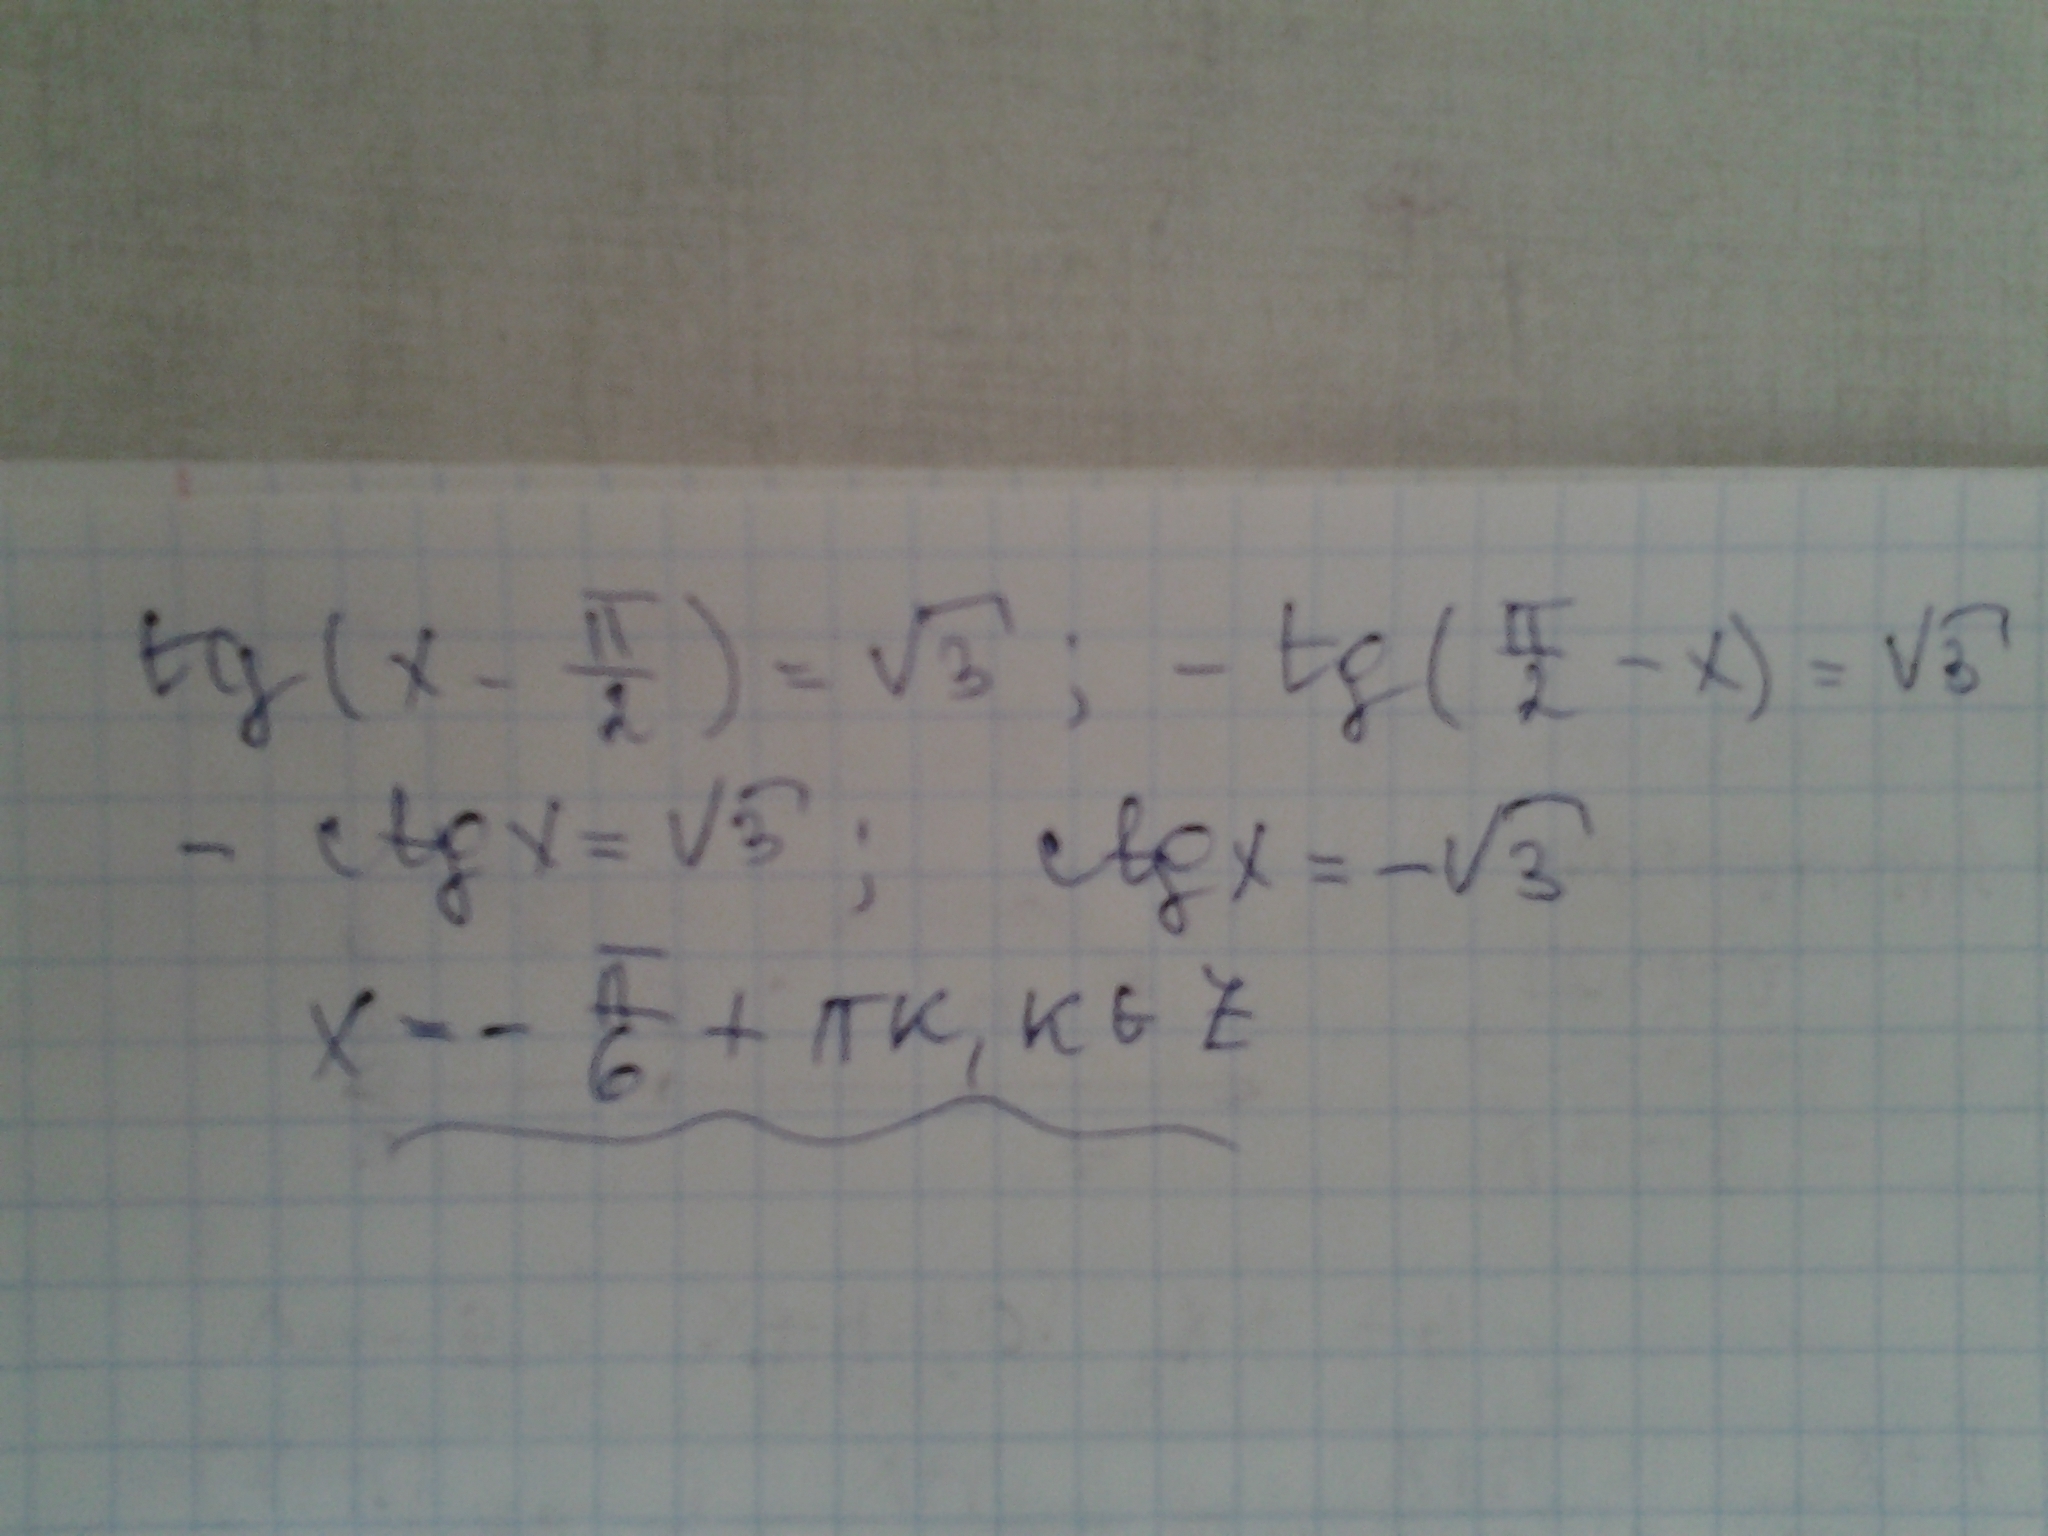 tg(x - π/2) = √3 ; - tg(π/2 - x) = √3
- ctg x = √3 ; ctg x = -√3
x = - π/6 + πк, к ∈ Z